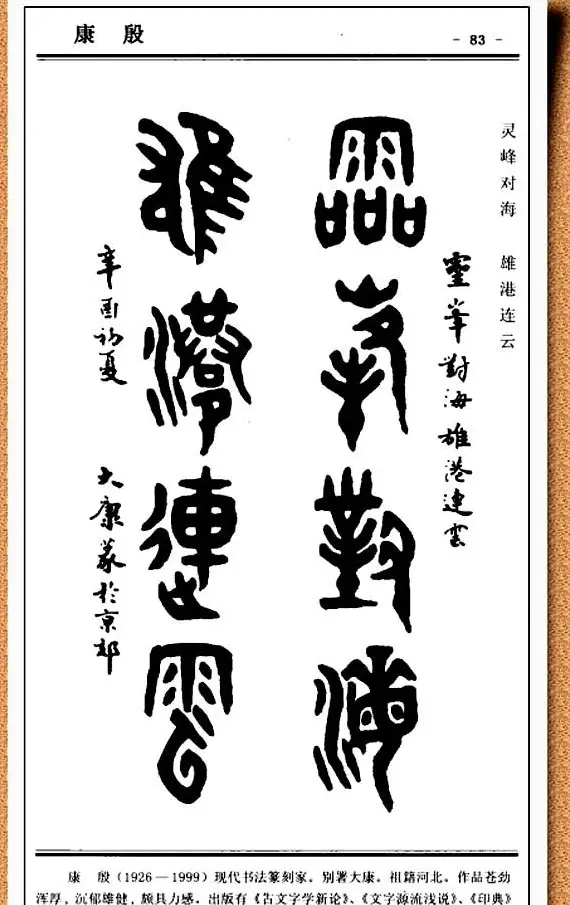 康 殷
- 83 -
灵峰对海 雄港连云
靈峯對海雄港連雲
靈峯對海
雄港連雲
辛酉初夏 大康篆於京郊
康 殷（1926—1999）现代书法篆刻家。别署大康。祖籍河北。作品苍劲
浑厚，沉郁雄健，颇具力感。出版有《古文字学新论》、《文字源流浅说》、《印典》